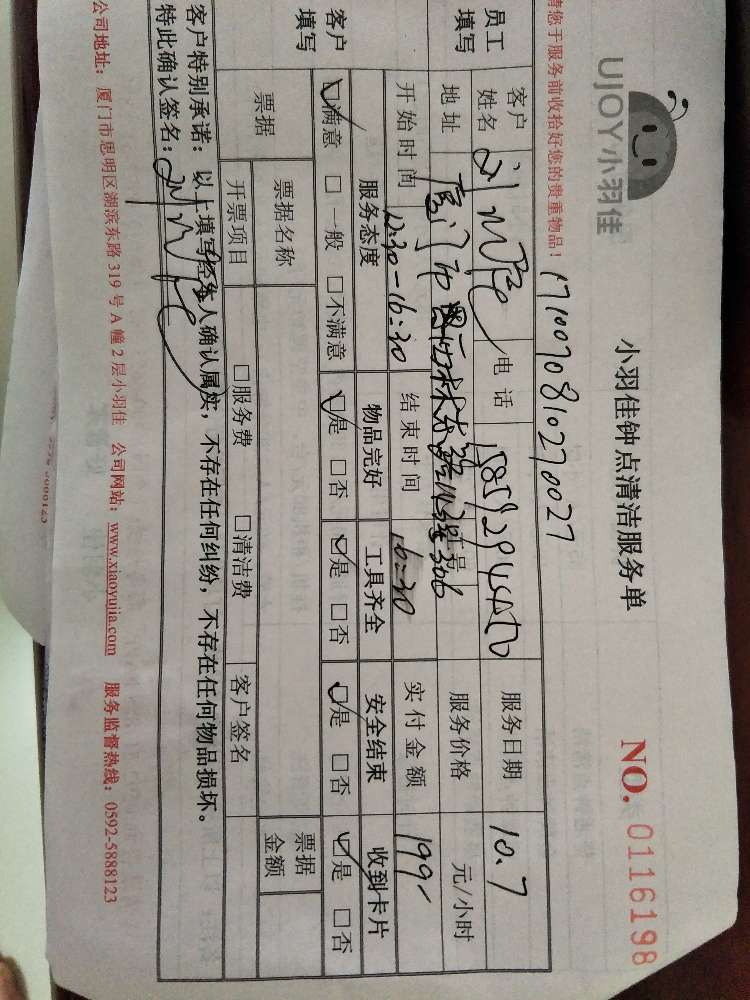 UJOY小羽佳
小羽佳钟点清洁服务单
NO. 0116198
请您于服务前收拾好您的贵重物品！
1710070810270027
员工填写
客户姓名 刘 电话 服务日期 10.7
地址 厦门 306 服务价格 元/小时
开始时间 12:30-16:30 结束时间 16:30 实付金额 199
客户填写
服务态度 物品完好 工具齐全 安全结束 收到卡片
☑满意 □一般 □不满意 ☑是 □否 ☑是 □否 ☑是 □否 ☑是 □否
票据 票据名称 票据金额
开票项目 □服务费 □清洁费 客户签名
客户特别承诺：以上填写经本人确认属实，不存在任何纠纷，不存在任何物品损坏。
特此确认签名：
公司地址：厦门市思明区湖滨东路 319 号 A 幢 2 层小羽佳 公司网站：www.xiaoyujia.com 服务监督热线：0592-5888123